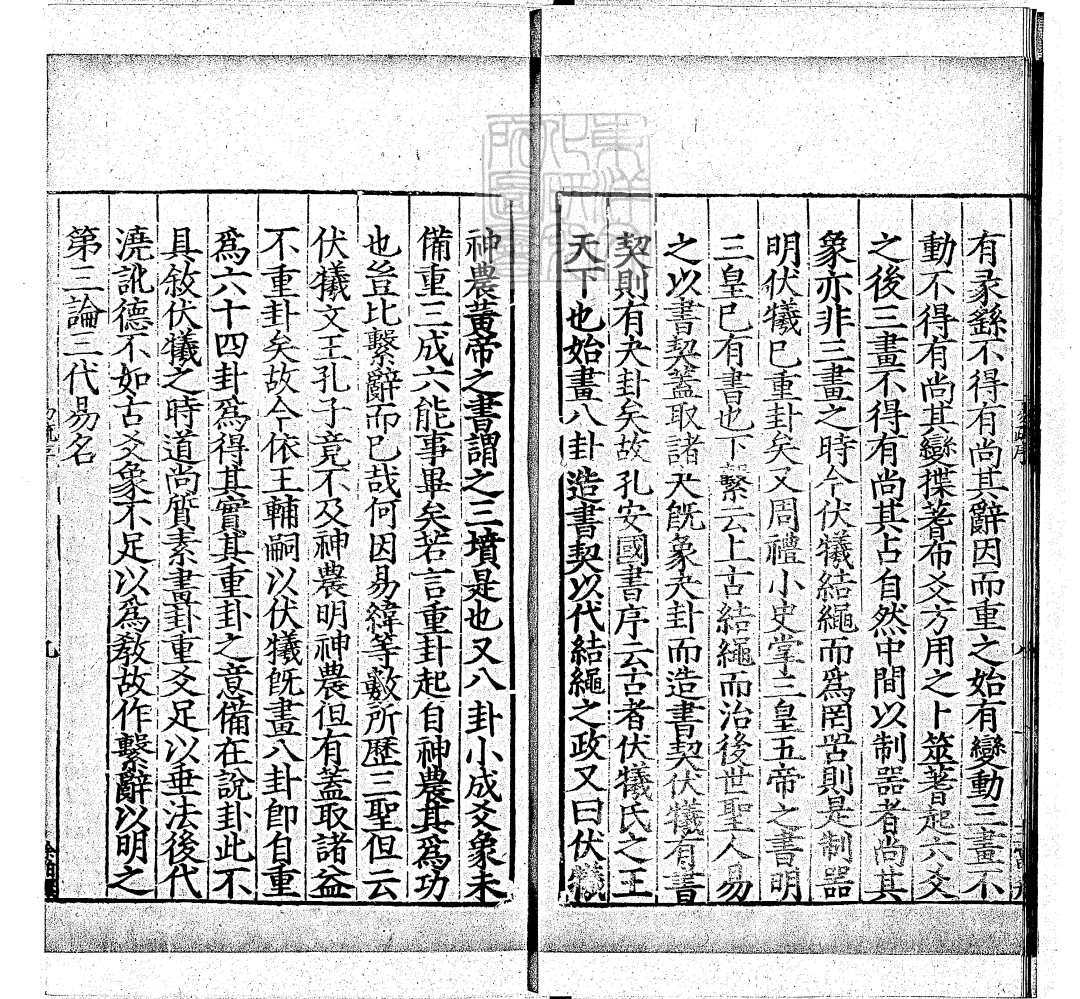 有彖繇不得有尚其辭因而重之始有變動三畫不
動不得有尚其變揲蓍布爻方用之卜筮蓍起六爻
之後三畫不得有尚其占自然中間以制器者尚其
象亦非三畫之時今伏犧結繩而爲罔罟則是制器
明伏犧已重卦矣又周禮小史掌三皇五帝之書明
三皇已有書也下繫云上古結繩而治後世聖人易
之以書契蓋取諸夬旣象夬卦而造書契伏犧有書
契則有夬卦矣故孔安國書序云古者伏犧氏之王
天下也始畫八卦造書契以代結繩之政又曰伏犧
神農黃帝之書謂之三墳是也又八卦小成爻象未
備重三成六能事畢矣若言重卦起自神農其爲功
也豈比繫辭而已哉何因易緯等數所歷三聖但云
伏犧文王孔子竟不及神農明神農但有蓋取諸益
不重卦矣故今依王輔嗣以伏犧旣畫八卦卽自重
爲六十四卦爲得其實其重卦之意備在說卦此不
具敘伏犧之時道尚質素畫卦重爻足以垂法後代
澆訛德不如古爻象不足以爲敎故作繫辭以明之
第三論三代易名
九